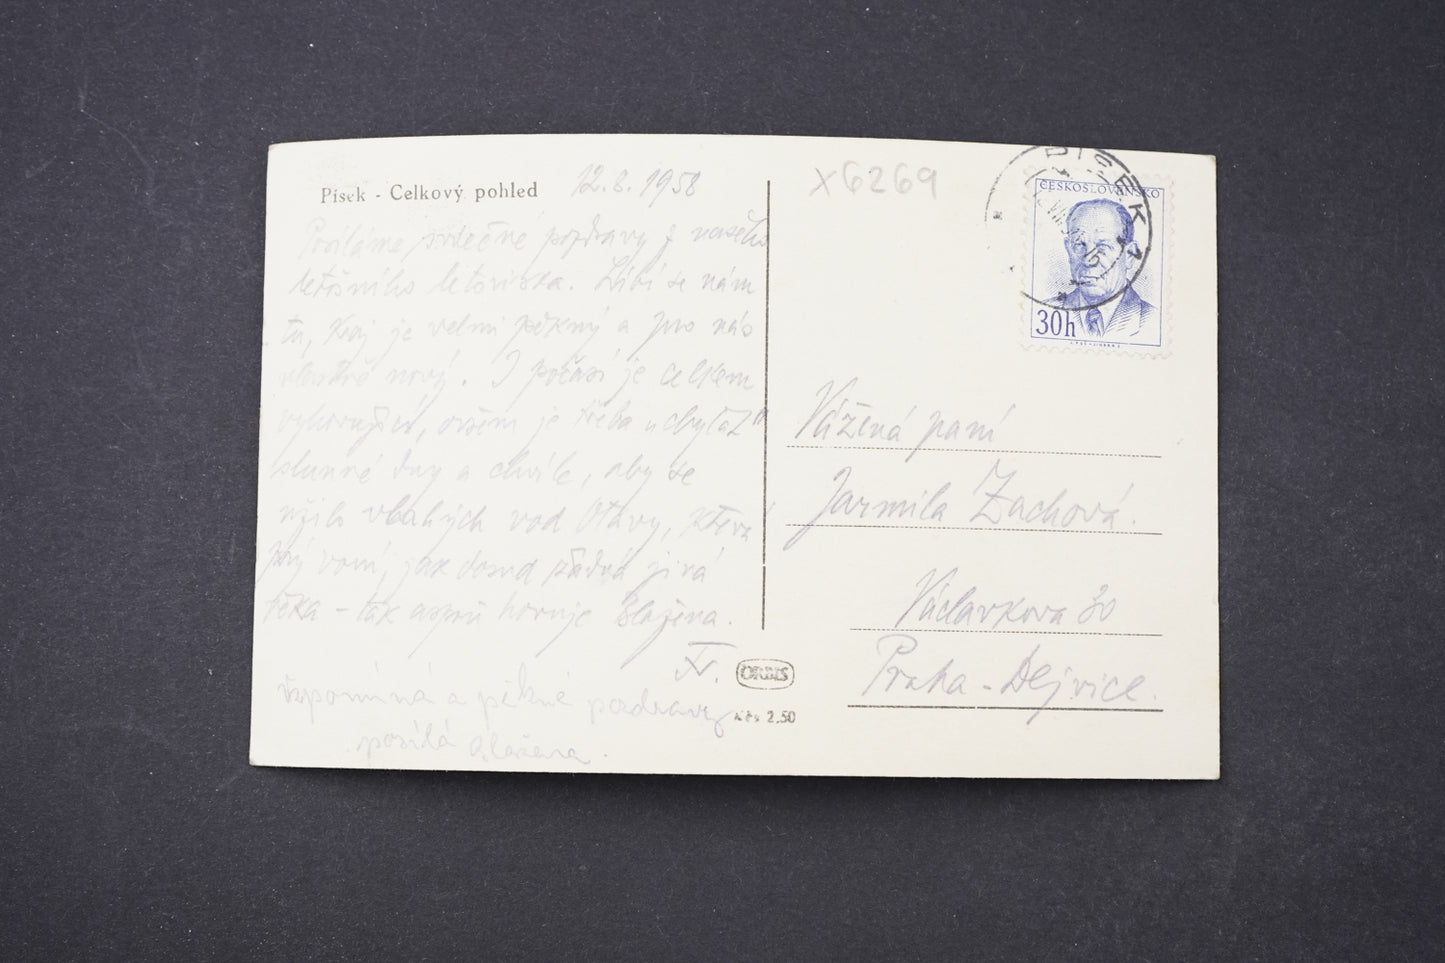 Písek - Celkový pohled 12.8.1958
Posíláme srdečné pozdravy z našeho
letošního letoviska. Líbí se nám
tu, kraj je velmi pěkný a pro nás
vlastně nový. I počasí je celkem
vyhovující, ovšem je třeba "uchytat"
slunné dny a chvíle, aby se
užilo vlahých vod Otavy, která
prý voní, jak dosud žádná jiná
řeka - tak aspoň horuje Blažena.
Vzpomíná a pěkné pozdravy
posílá Blažena.
ORBIS
Kčs 2.50
X6269
PÍSEK 1
ČESKOSLOVENSKO
30h
Vážená paní
Jarmila Zachová.
Václavkova 30
Praha - Dejvice.